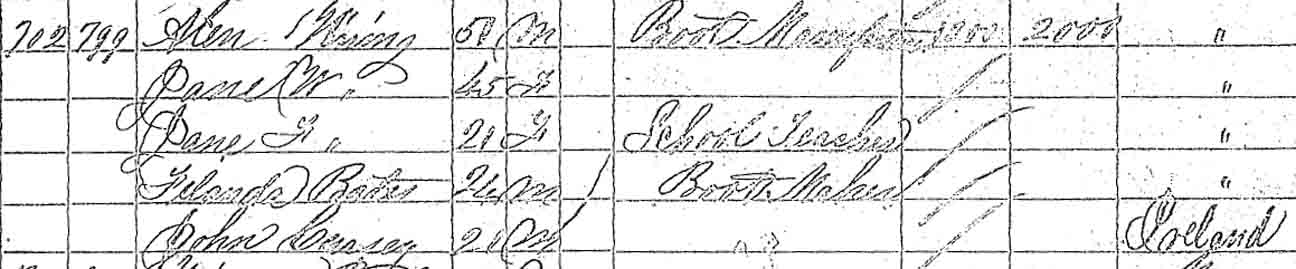 702 799 Aben Thing 51 M Boot Manufactr 1200 2000 "
Jane W " 45 F "
Jane F " 21 F School Teacher "
Bates 24 M / Boot Maker "
John 21 M Ireland